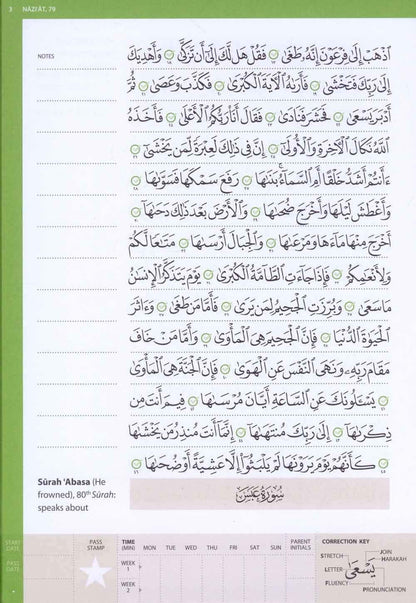 3 NĀZIʿĀT, 79
NOTES
ٱذْهَبْ إِلَىٰ فِرْعَوْنَ إِنَّهُۥ طَغَىٰ ١٧ فَقُلْ هَل لَّكَ إِلَىٰٓ أَن تَزَكَّىٰ ١٨ وَأَهْدِيَكَ
إِلَىٰ رَبِّكَ فَتَخْشَىٰ ١٩ فَأَرَىٰهُ ٱلْـَٔايَةَ ٱلْكُبْرَىٰ ٢٠ فَكَذَّبَ وَعَصَىٰ ٢١ ثُمَّ
أَدْبَرَ يَسْعَىٰ ٢٢ فَحَشَرَ فَنَادَىٰ ٢٣ فَقَالَ أَنَا۠ رَبُّكُمُ ٱلْأَعْلَىٰ ٢٤ فَأَخَذَهُ
ٱللَّهُ نَكَالَ ٱلْـَٔاخِرَةِ وَٱلْأُولَىٰٓ ٢٥ إِنَّ فِى ذَٰلِكَ لَعِبْرَةً لِّمَن يَخْشَىٰٓ ٢٦
ءَأَنتُمْ أَشَدُّ خَلْقًا أَمِ ٱلسَّمَآءُ ۚ بَنَىٰهَا ٢٧ رَفَعَ سَمْكَهَا فَسَوَّىٰهَا ٢٨
وَأَغْطَشَ لَيْلَهَا وَأَخْرَجَ ضُحَىٰهَا ٢٩ وَٱلْأَرْضَ بَعْدَ ذَٰلِكَ دَحَىٰهَآ ٣٠
أَخْرَجَ مِنْهَا مَآءَهَا وَمَرْعَىٰهَا ٣١ وَٱلْجِبَالَ أَرْسَىٰهَا ٣٢ مَتَـٰعًا لَّكُمْ
وَلِأَنْعَـٰمِكُمْ ٣٣ فَإِذَا جَآءَتِ ٱلطَّآمَّةُ ٱلْكُبْرَىٰ ٣٤ يَوْمَ يَتَذَكَّرُ ٱلْإِنسَـٰنُ
مَا سَعَىٰ ٣٥ وَبُرِّزَتِ ٱلْجَحِيمُ لِمَن يَرَىٰ ٣٦ فَأَمَّا مَن طَغَىٰ ٣٧ وَءَاثَرَ
ٱلْحَيَوٰةَ ٱلدُّنْيَا ٣٨ فَإِنَّ ٱلْجَحِيمَ هِىَ ٱلْمَأْوَىٰ ٣٩ وَأَمَّا مَنْ خَافَ
مَقَامَ رَبِّهِۦ وَنَهَى ٱلنَّفْسَ عَنِ ٱلْهَوَىٰ ٤٠ فَإِنَّ ٱلْجَنَّةَ هِىَ ٱلْمَأْوَىٰ
٤١ يَسْـَٔلُونَكَ عَنِ ٱلسَّاعَةِ أَيَّانَ مُرْسَىٰهَا ٤٢ فِيمَ أَنتَ مِن
ذِكْرَىٰهَآ ٤٣ إِلَىٰ رَبِّكَ مُنتَهَىٰهَآ ٤٤ إِنَّمَآ أَنتَ مُنذِرُ مَن يَخْشَىٰهَا
٤٥ كَأَنَّهُمْ يَوْمَ يَرَوْنَهَا لَمْ يَلْبَثُوٓا۟ إِلَّا عَشِيَّةً أَوْ ضُحَىٰهَا ٤٦
Sūrah ʿAbasa (He
frowned), 80th Sūrah:
speaks about
سُورَةُ عَبَسَ
START DATE
PASS DATE
PASS STAMP
TIME (MIN) MON TUE WED THU FRI SAT SUN
WEEK 1
WEEK 2
PARENT INITIALS
CORRECTION KEY
STRETCH
LETTER
FLUENCY
يَسْعَىٰ
JOIN
HARAKAH
PRONUNCIATION